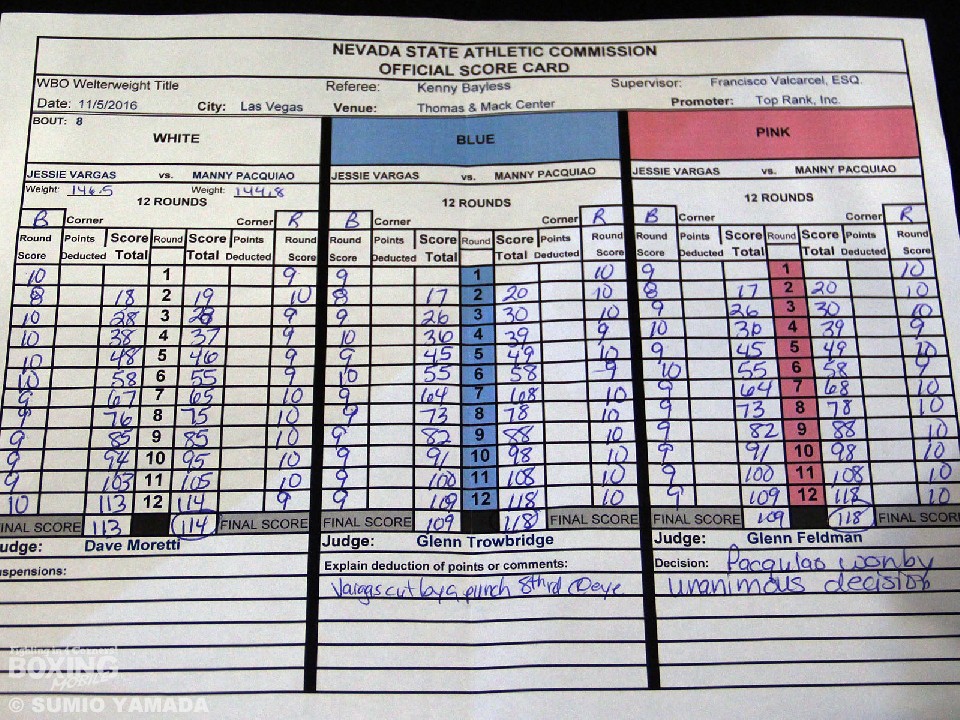 NEVADA STATE ATHLETIC COMMISSION
OFFICIAL SCORE CARD
WBO Welterweight Title Referee: Kenny Bayless Supervisor: Francisco Valcarcel, ESQ.
Date: 11/5/2016 City: Las Vegas Venue: Thomas & Mack Center Promoter: Top Rank, Inc.
BOUT: 8
WHITE BLUE PINK
JESSIE VARGAS vs. MANNY PACQUIAO JESSIE VARGAS vs. MANNY PACQUIAO JESSIE VARGAS vs. MANNY PACQUIAO
Weight: 146.5 Weight: 144.8
12 ROUNDS 12 ROUNDS 12 ROUNDS
B Corner Corner R B Corner Corner R B Corner Corner R
Round Points Score Round Score Points Round Round Points Score Round Score Points Round Round Points Score Round Score Points Round
Score Deducted Total Total Deducted Score Score Deducted Total Total Deducted Score Score Deducted Total Total Deducted Score
10 1 9 9 1 10 9 1 10
8 18 2 19 10 8 17 2 20 10 8 17 2 20 10
10 28 3 28 9 9 26 3 30 10 9 26 3 30 10
10 38 4 37 9 10 36 4 39 9 10 36 4 39 9
10 48 5 46 9 9 45 5 49 10 9 45 5 49 10
10 58 6 55 9 10 55 6 58 9 10 55 6 58 9
9 67 7 65 10 9 64 7 68 10 9 64 7 68 10
9 76 8 75 10 9 73 8 78 10 9 73 8 78 10
9 85 9 85 10 9 82 9 88 10 9 82 9 88 10
9 94 10 95 10 9 91 10 98 10 9 91 10 98 10
9 103 11 105 10 9 100 11 108 10 9 100 11 108 10
10 113 12 114 9 9 109 12 118 10 9 109 12 118 10
FINAL SCORE 113 114 FINAL SCORE FINAL SCORE 109 118 FINAL SCORE FINAL SCORE 109 118 FINAL SCORE
Judge: Dave Moretti Judge: Glenn Trowbridge Judge: Glenn Feldman
spensions: Explain deduction of points or comments: Decision: Pacquiao won by
Vargas cut by a punch 8th rd eye unanimous decision
BOXING
MOBILE
© SUMIO YAMADA